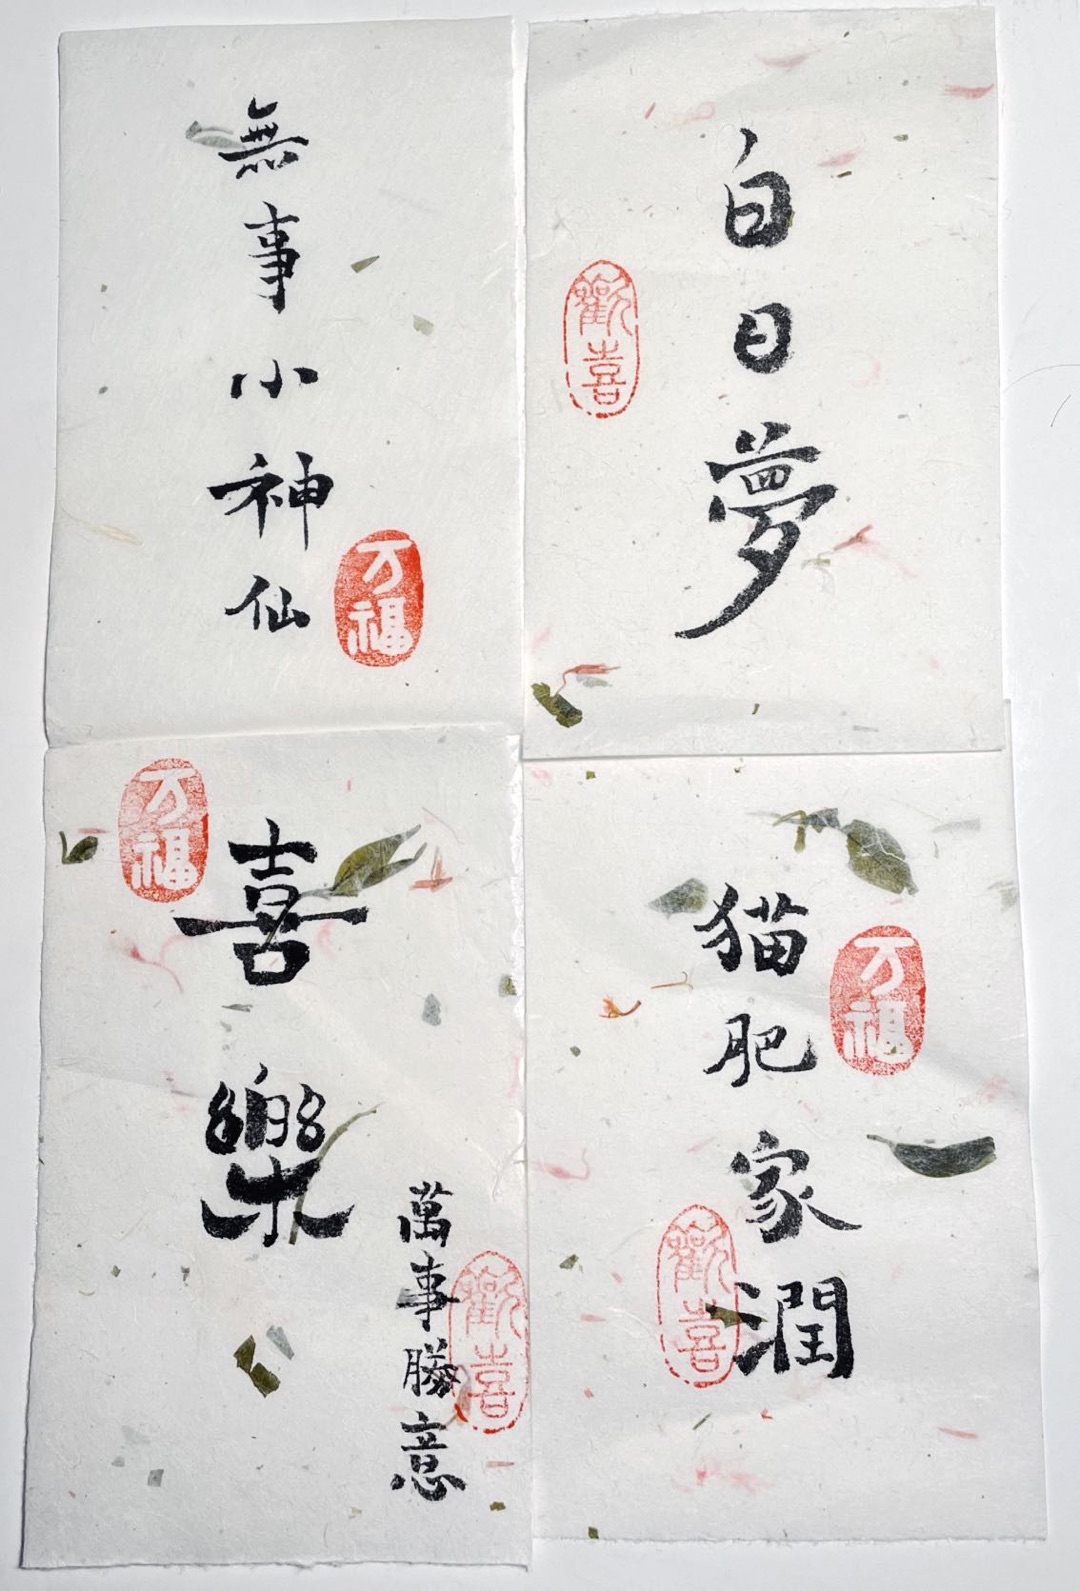 無事小神仙
万福
白日夢
歡喜
万福
喜樂
萬事勝意
歡喜
猫肥家潤
万福
歡喜